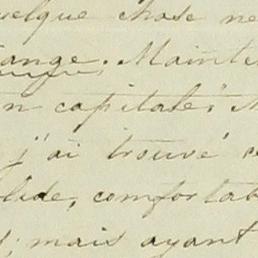 uelque chose ne
ange. Mainte
n capitale." M
j'ai trouvé c
lide, confortab
; mais ayant